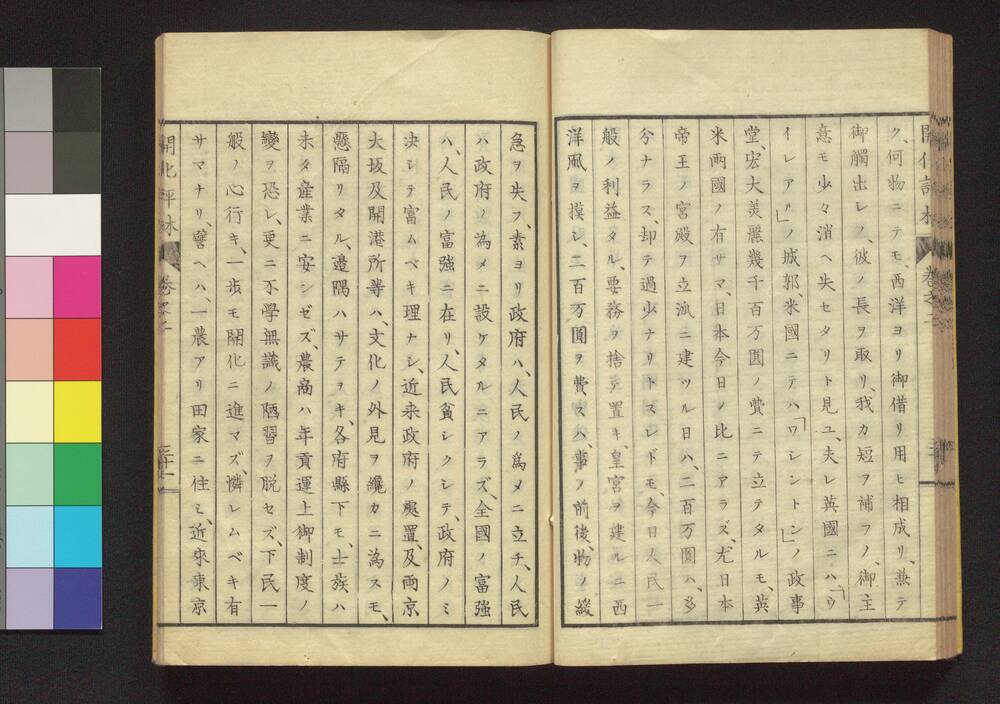 ク、何物ニテモ、西洋ヨリ御借リ用ヒ相成リ、兼テ
御觸出レノ、彼ノ長ヲ取リ、我カ短ヲ補フノ、御主
意モ少々消ヘ失セタリト見ユ、夫レ英國ニハ、「ウ
イレアル」ノ城郭、米國ニテハ、「ワシントン」ノ政事
堂、宏大美麗幾千百万圓ノ費ニテ立テタルモ、英
米兩國ノ有サマ、日本今日ノ比ニアラズ、尤日本
帝王ノ宮殿ヲ立派ニ建ツル日ハ、二百万圓ハ、多
分ナラス、却テ過少ナリトスレドモ、今日人民一
般ノ利益タル、要務ヲ捨テ置キ、皇宮ヲ建ルニ西
洋風ヲ摸シ、二百万圓ヲ費スハ、事ノ前後、物ノ緩
急ヲ失フ、素ヨリ政府ハ、人民ノ為メニ立チ、人民
ハ政府ノ為メニ設ケタルニアラズ、全國ノ富強
ハ、人民ノ富強ニ在リ、人民貧シクシテ、政府ノミ
決シテ富ムベキ理ナシ、近来政府ノ處置、及両京
大坂及開港所等ハ、文化ノ外見ヲ纔カニ為スモ、
懸隔リタル、邉隅ハサテヲキ、各府縣下モ、士族ハ
未タ産業ニ安シゼズ、農商ハ年貢運上御制度ノ
變ヲ恐レ、更ニ不學無識ノ陋習ヲ脱セズ、下民一
般ノ心行キ、一歩モ開化ニ進マズ、憐レムベキ有
サマナリ、譬ヘハ、一農アリ田家ニ住ミ、近來東京
開化評林 巻之二